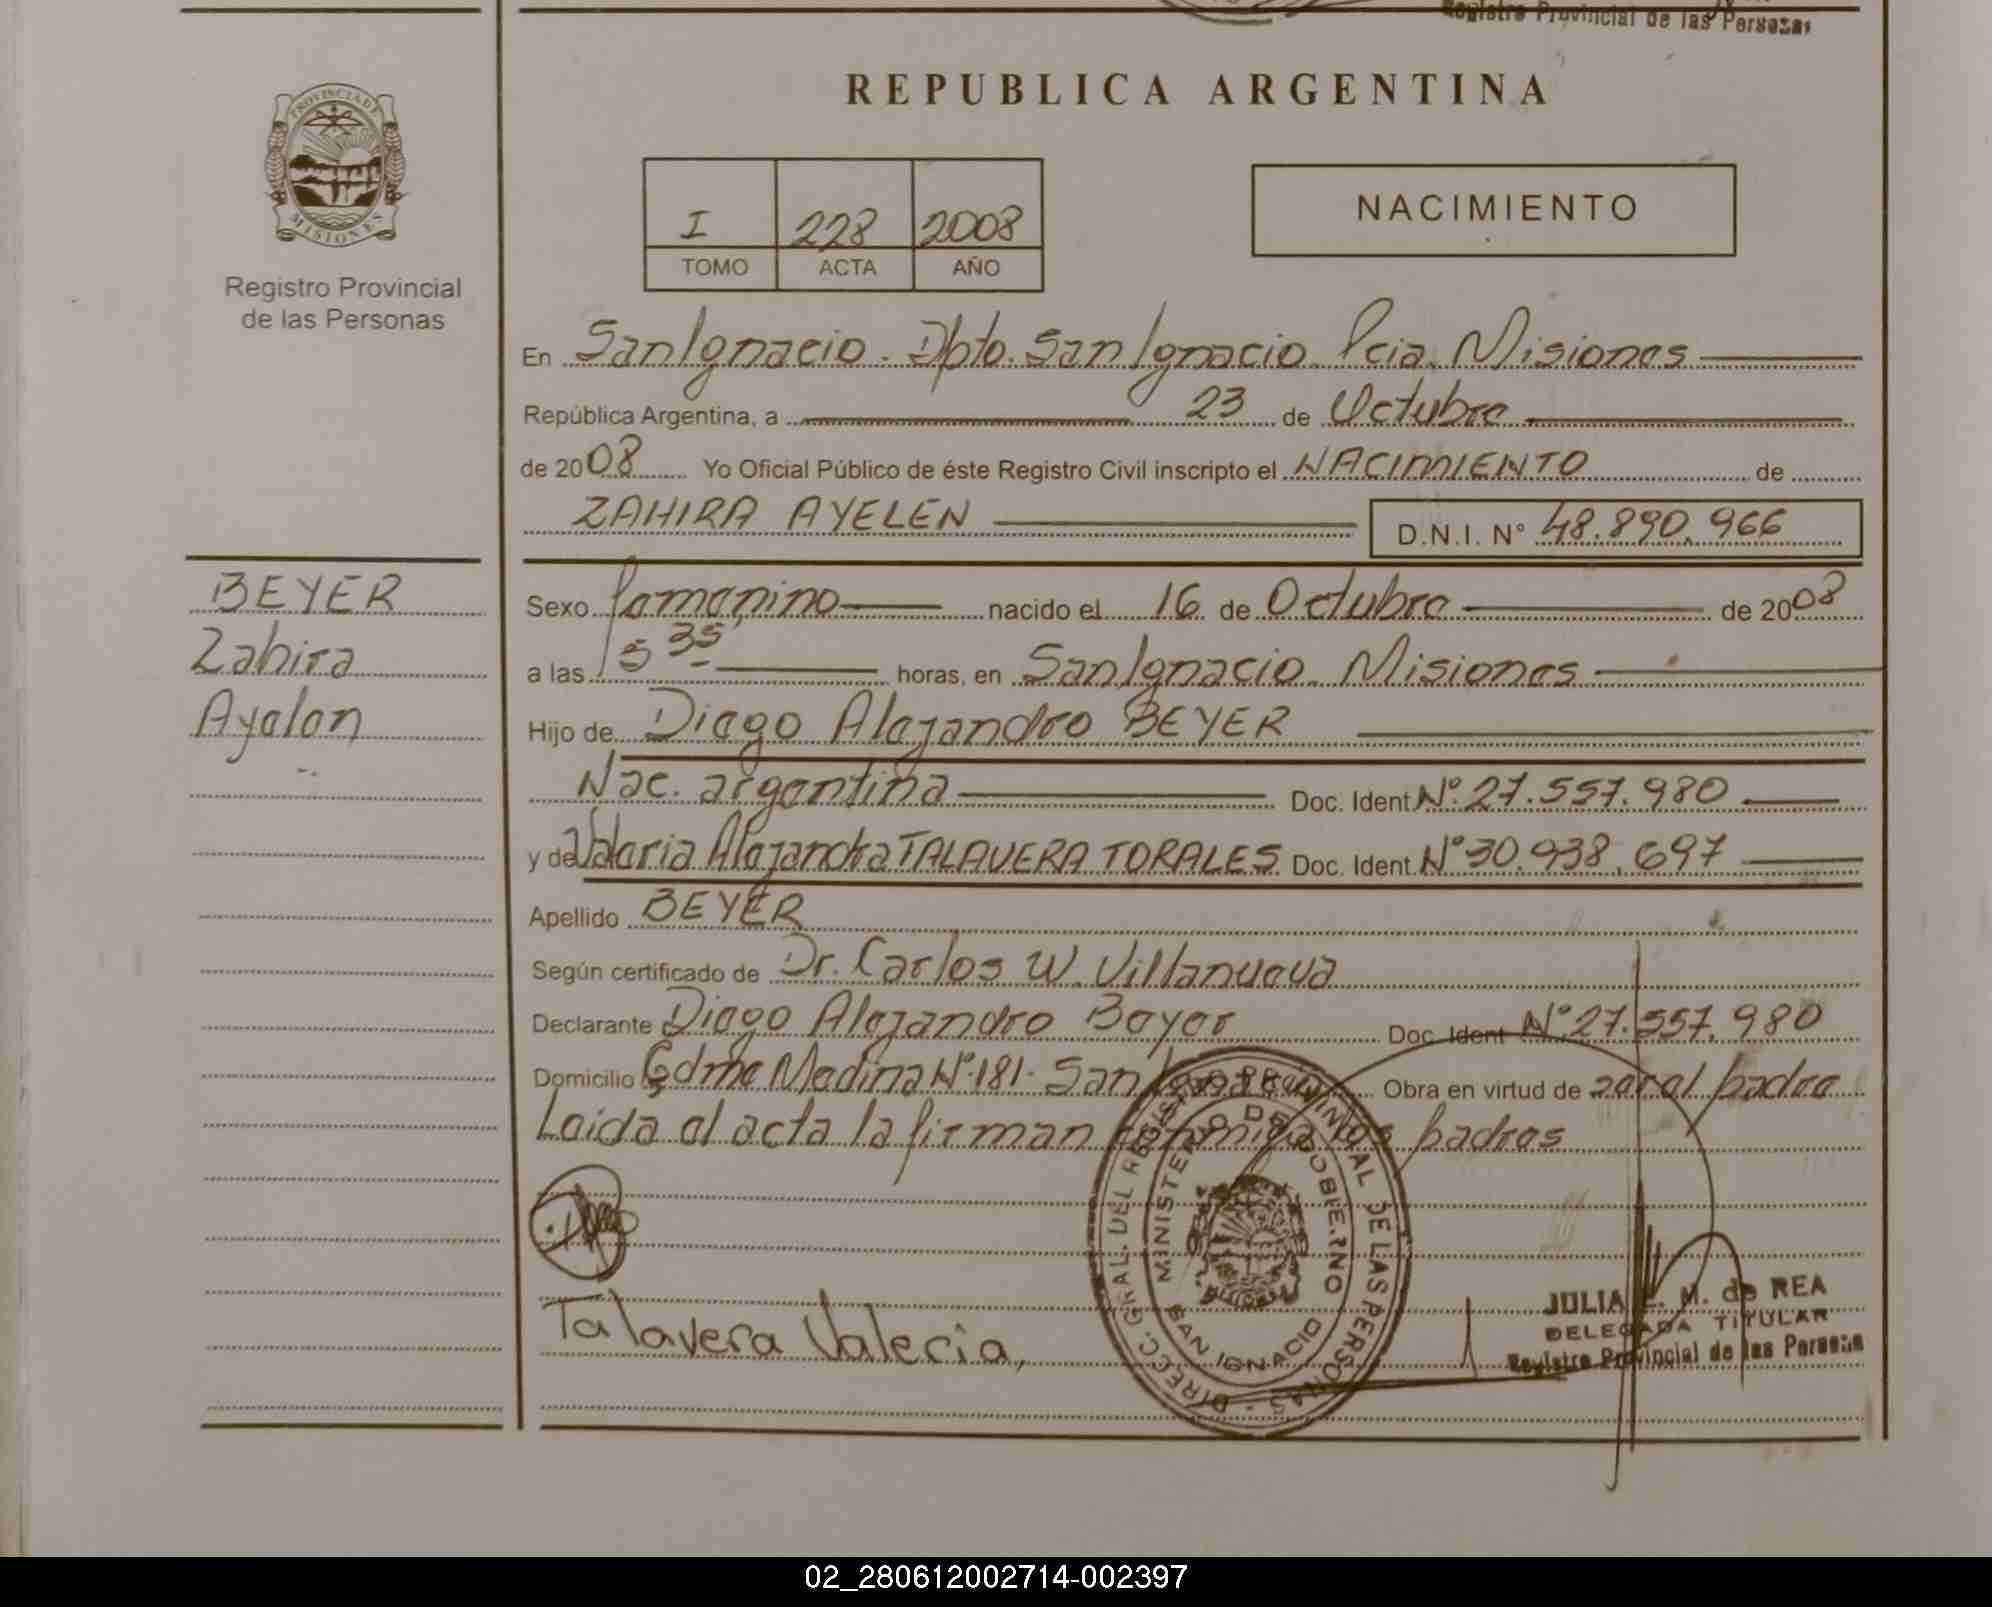 Registro Provincial de las Personas
REPUBLICA ARGENTINA
PROVINCIA DE
MISIONES
Registro Provincial
de las Personas
I 228 2008
TOMO ACTA AÑO
NACIMIENTO
En San Ignacio. Dpto. San Ignacio. Pcia. Misiones
República Argentina, a 23 de Octubre
de 2008 Yo Oficial Público de éste Registro Civil inscripto el NACIMIENTO de
ZAHIRA AYELEN D.N.I. N° 48.890.966
BEYER
Zahira
Ayelen
Sexo femenino nacido el 16 de Octubre de 2008
a las 15 35 horas, en San Ignacio. Misiones
Hijo de Diego Alejandro BEYER
Nac. argentina Doc. Ident. N°. 27.557.980
y de Valeria Alejandra TALAVERA TORALES Doc. Ident. N° 30.938.697
Apellido BEYER
Según certificado de Dr. Carlos W. Villanueva
Declarante Diego Alejandro Beyer Doc. Ident N°. 27.557.980
Domicilio Gdme Medina N°. 181. San Obra en virtud de ser el padre
Leida el acta la firman conmigo los padres
Talavera Valeria,
DIRECC. GRAL. DEL REGISTRO PROVINCIAL DE LAS PERSONAS
MINISTERIO DE GOBIERNO
SAN IGNACIO
JULIA M. de REA
DELEGADA TITULAR
Registro Provincial de las Personas
02_280612002714-002397